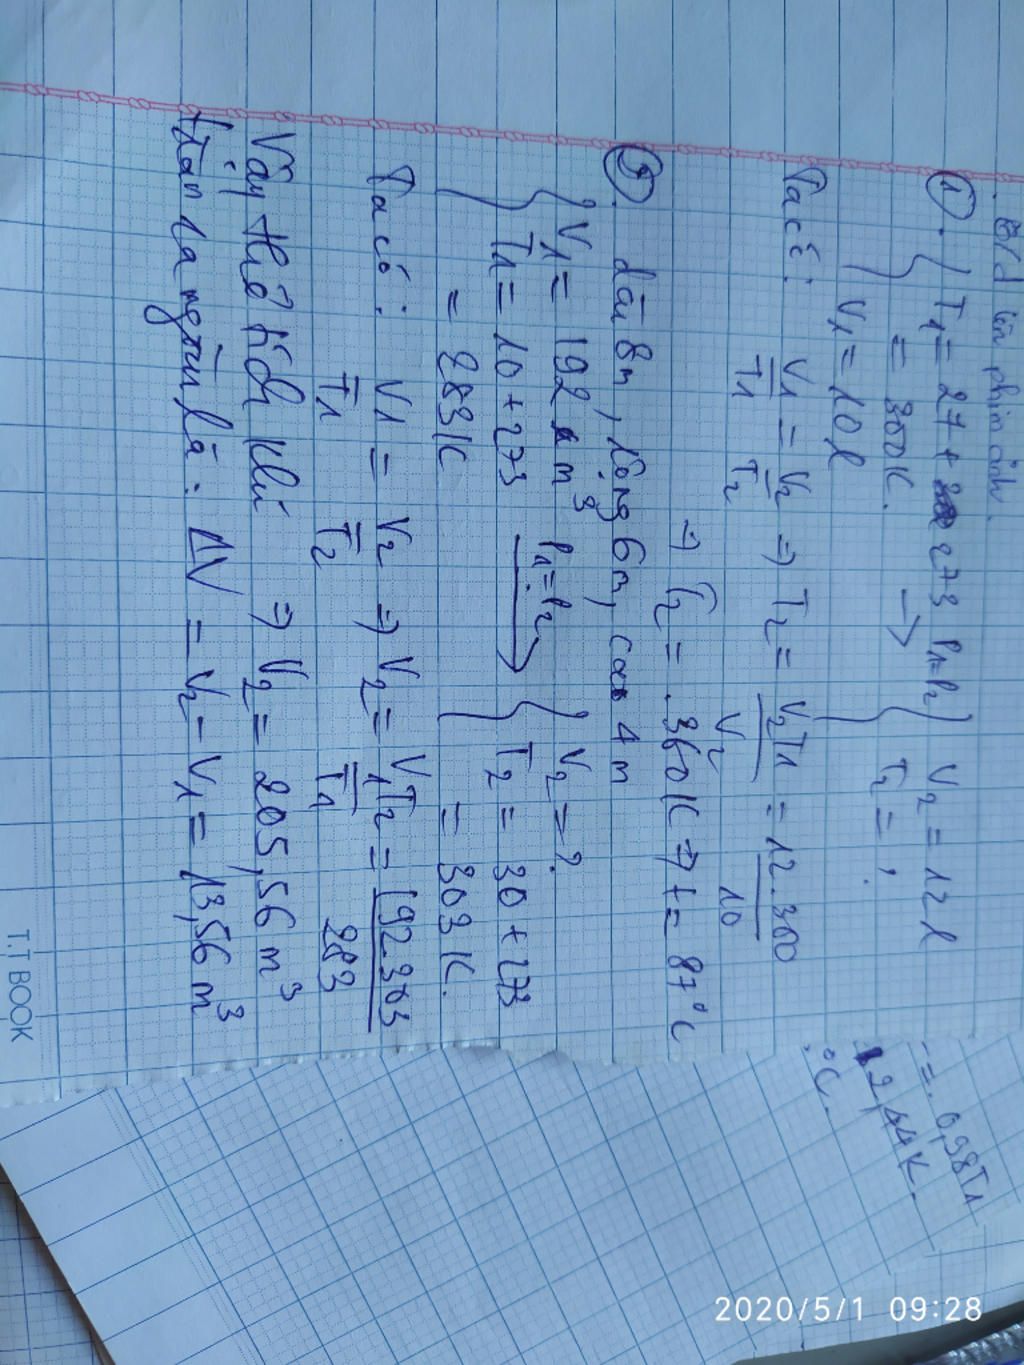 B/d lên phim ảnh.
① T1 = 27 + 273 P1=P2 V2 = 12l
= 300K. → T2 = ?
V1 = 10l
Ta có: V1/T1 = V2/T2 ⇒ T2 = V2T1/V2 = 12.300/10
⇒ T2 = 360K ⇒ t = 87°C
dài 8m, rộng 6m, cao 4m
V1 = 192 m³ P1=P2 V2 = ?
T1 = 10 + 273 → T2 = 30 + 273
= 283K = 303K.
Ta có: V1/T1 = V2/T2 ⇒ V2 = V1T2/T1 = 192.303/283
Vậy thể tích khí ⇒ V2 = 205,56 m³
tràn ra ngoài là: ΔV = V2 - V1 = 13,56 m³
T.T BOOK
= 0,98T1
2,44K.
°C.
2020/5/1 09:28